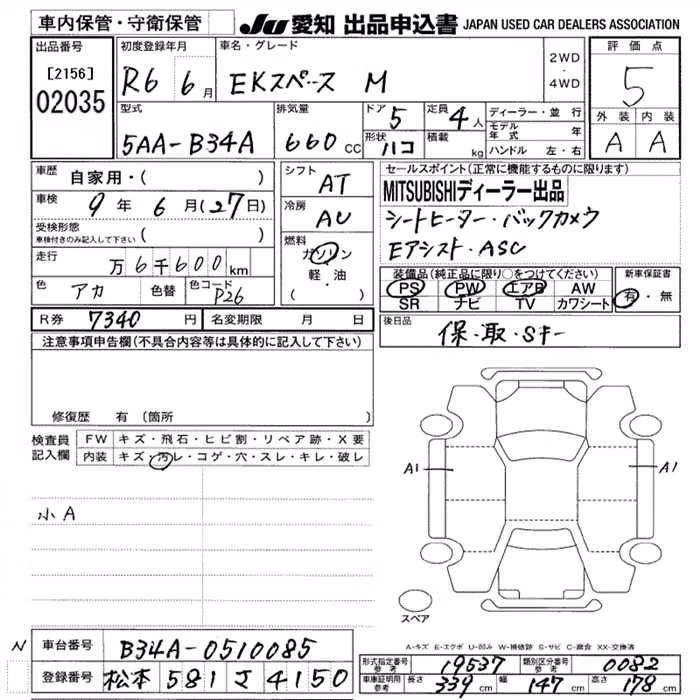 車内保管・守衛保管 JU 愛知 出品申込書 JAPAN USED CAR DEALERS ASSOCIATION
出品番号 [2156] 02035
初度登録年月 R6 6月
車名・グレード EKスペース M
2WD ・ 4WD
評価点 5
外装 内装
A A
型式 5AA-B34A
排気量 660 CC
ドア 5 定員 4人
形状 ハコ 積載 kg
ディーラー・並行
モデル年式 年
ハンドル 左・右
車歴 自家用・( )
車検 9年 6月(27日)
受検形態 車検付きのみ記入して下さい ( )
走行 万 6千600km
色 アカ 色替 色コード P26
シフト AT
冷房 AU
燃料 ガソリン
軽・油
( ・ )
セールスポイント(正常に機能するものに限ります)
MITSUBISHIディーラー出品
シートヒーター・バックカメラ
Eアシスト・ASC
装備品(純正品に限り○をつけてください)
PS PW エアB AW
SR ナビ TV カワシート
新車保証書
有・無
R券 7340円 名変期限 月 日
後日品 保・取・Sキー
注意事項申告欄(不具合内容等は具体的に記入して下さい)
修復歴 有 (箇所 )
検査員記入欄
FW キズ・飛石・ヒビ割・リペア跡・X要
内装 キズ・汚レ・コゲ・穴・スレ・キレ・破レ
小A
A1 A1
スペア
A-キズ E-エクボ U-凹み W-補修跡 S-サビ C-腐食 XX-交換済
N 車台番号 B34A-0510085
登録番号 松本 581 さ 4150
形式指定番号 参考 19537 類別区分番号 参考 0082
車庫証明用 参考 長さ 339 cm 幅 147 cm 高さ 178 cm